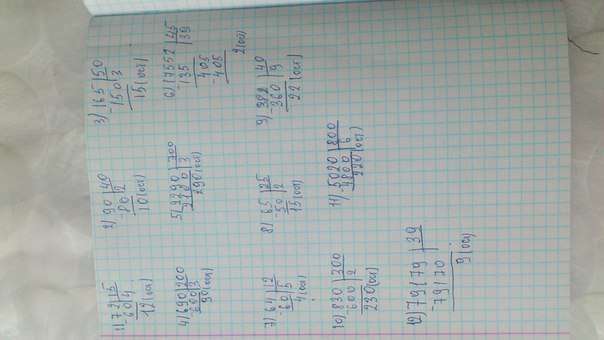 1) 72|15
-60|4
12(ост)
2) 90|40
-80|2
10(ост)
3) 165|50
-150|3
15(ост)
4) 690|200
600|3
90(ост)
5) 2390|700
2100|3
290(ост)
6) 17552|45
-135|39
405
-405
2(ост)
7) 64|12
-60|5
4(ост)
8) 65|25
-50|2
15(ост)
9) 382|40
-360|9
22(ост)
10) 830|300
600|2
230(ост)
11) 5020|800
-4800|6
220(ост)
12) 79179|39
-79170
9(ост)